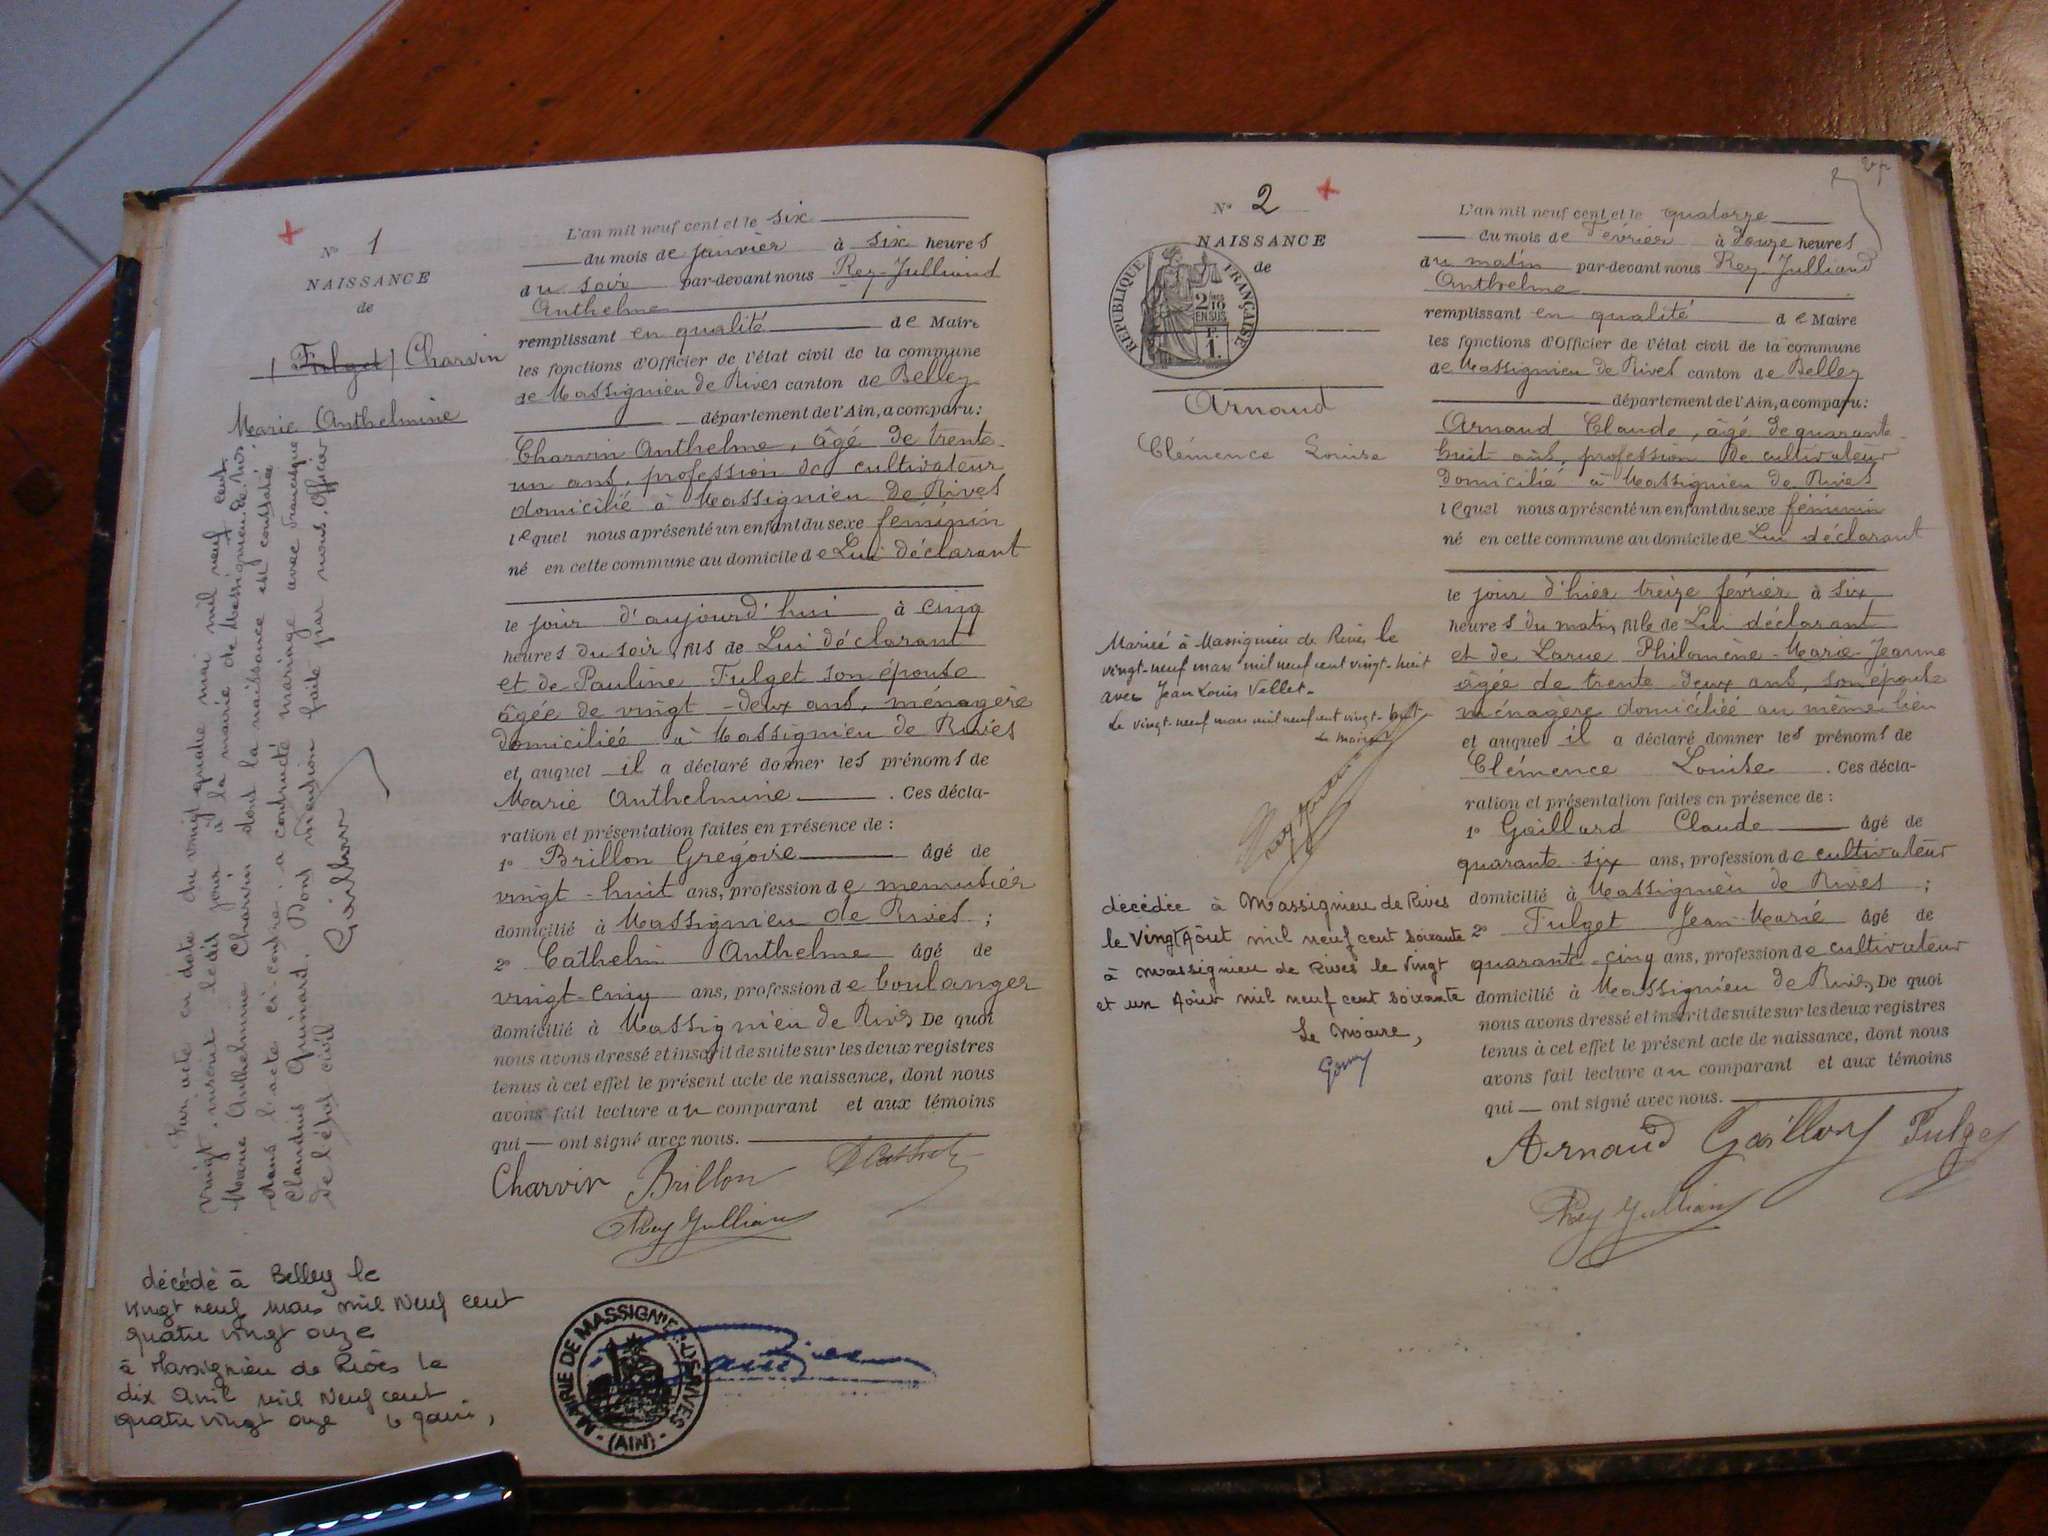 N° 1
NAISSANCE
de
Fulget Charvin
Marie Anthelmine
L'an mil neuf cent et le six
du mois de janvier à six heures
du soir par-devant nous Rey-Julliand
Anthelme
remplissant en qualité de Maire
les fonctions d'Officier de l'état civil de la commune
de Massignieu de Rives canton de Belley
département de l'Ain, a comparu :
Charvin Anthelme, âgé de trente-
un ans, profession de cultivateur
domicilié à Massignieu de Rives
lequel nous a présenté un enfant du sexe féminin
né en cette commune au domicile de Lui déclarant
le jour d'aujourd'hui à cinq
heures du soir, fils de Lui déclarant
et de Pauline Fulget son épouse
âgée de vingt-deux ans, ménagère
domiciliée à Massignieu de Rives
et auquel il a déclaré donner les prénoms de
Marie Anthelmine. Ces décla-
ration et présentation faites en présence de :
1° Brillon Grégoire âgé de
vingt-huit ans, profession de menuisier
domicilié à Massignieu de Rives ;
2° Cathelin Anthelme âgé de
vingt-cinq ans, profession de boulanger
domicilié à Massignieu de Rives De quoi
nous avons dressé et inscrit de suite sur les deux registres
tenus à cet effet le présent acte de naissance, dont nous
avons fait lecture au comparant et aux témoins
qui — ont signé avec nous.
Charvin Brillon
Rey Jullian
Par acte en date du vingt quatre mai mil neuf cent
vingt, inscrit ledit jour à la mairie de Massignieu de Rives,
Marie Anthelmine Charvin dont la naissance est constatée
dans l'acte ci-contre a contracté mariage avec Françisque
Claudius Quinard. Dont mention faite par nous, Officier
de l'état civil
décédé à Belley le
vingt neuf mars mil neuf cent
quatre vingt onze
à Massignieu de Rives le
dix avril mil neuf cent
quatre vingt onze
MAIRIE DE MASSIGNIEU DE RIVES
(AIN)
N° 2
NAISSANCE
de
REPUBLIQUE FRANÇAISE
2/10
EN SUS
1.
Arnaud
Clémence Louise
Mariée à Massignieu de Rives le
vingt-neuf mars mil neuf cent vingt-huit
avec Jean Louis Vellet.
Le vingt-neuf mars mil neuf cent vingt-huit
Le maire
décédée à Massignieu de Rives
le vingt Août mil neuf cent soixante
à Massignieu de Rives le vingt
et un Août mil neuf cent soixante
Le Maire,
L'an mil neuf cent et le quatorze
du mois de Février à douze heures
du matin par-devant nous Rey-Julliand
Anthelme
remplissant en qualité de Maire
les fonctions d'Officier de l'état civil de la commune
de Massignieu de Rives canton de Belley
département de l'Ain, a comparu :
Arnaud Claude, âgé de quarante-
huit ans, profession de cultivateur
domicilié à Massignieu de Rives
lequel nous a présenté un enfant du sexe féminin
né en cette commune au domicile de Lui déclarant
le jour d'hier treize février à six
heures du matin, fille de Lui déclarant
et de Larue Philomène-Marie-Jeanne
âgée de trente-deux ans, son épouse
ménagère domiciliée au même lieu
et auquel il a déclaré donner les prénoms de
Clémence Louise. Ces décla-
ration et présentation faites en présence de :
1° Gaillard Claude âgé de
quarante-six ans, profession de cultivateur
domicilié à Massignieu de Rives ;
2° Fulget Jean-Marie âgé de
quarante-cinq ans, profession de cultivateur
domicilié à Massignieu de Rives De quoi
nous avons dressé et inscrit de suite sur les deux registres
tenus à cet effet le présent acte de naissance, dont nous
avons fait lecture au comparant et aux témoins
qui — ont signé avec nous.
Arnaud Gaillard Fulget
Rey Jullian